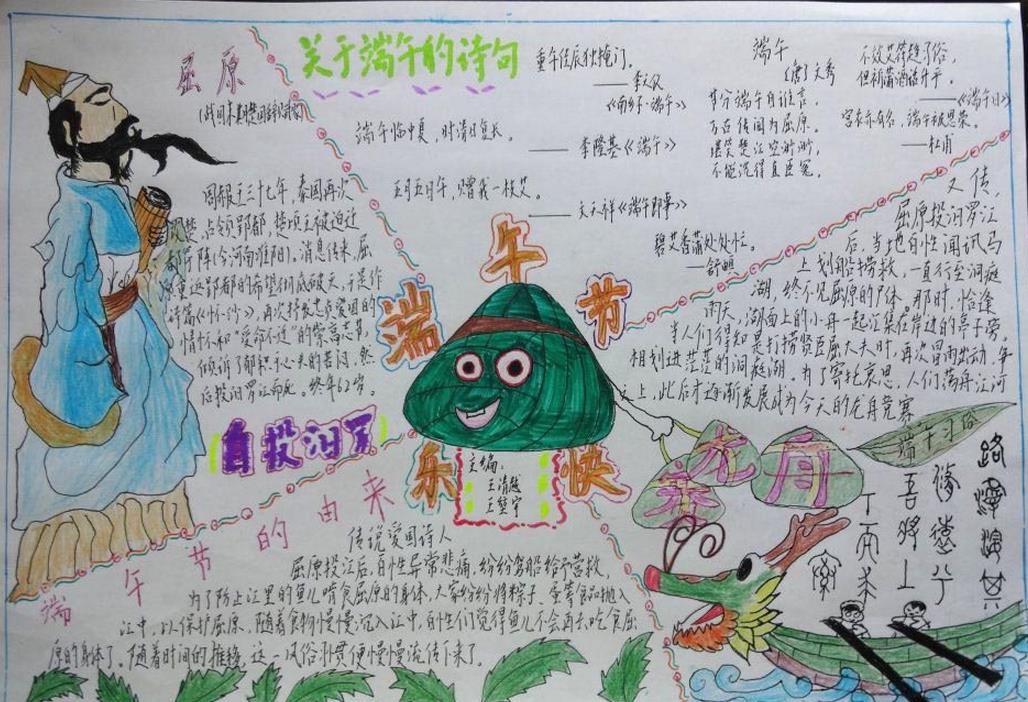 屈原
关于端午的诗句
端午临中夏，时清日复长。
——李隆基《端午》
五月五日午，赠我一枝艾。
——文天祥《端午即事》
重午佳辰独掩门。
《南乡子·端午》
碧艾香蒲处处忙。
——舒頔
端午
(唐)文秀
节分端午自谁言，
万古传闻为屈原。
堪笑楚江空渺渺，
不能洗得直臣冤。
不效艾符趋习俗，
但祈蒲酒话升平。
——《端午日》
宫衣亦有名，端午被恩荣。
——杜甫
周赧王三十七年，秦国再次
占领郢都，楚顷王被迫迁
消息传来，屈
再次抒发忠贞爱国的
情怀和“受命不迁”的崇高志节，
倾诉了郁积于心头的苦闷，然
后投汨罗江而死。终年62岁。
自投汨罗
又传，
屈原投汨罗江
后，当地百姓闻讯马
上划船捞救，一直行至洞庭
湖，终不见屈原的尸体。那时，恰逢
雨天，湖面上的小舟一起汇集在岸边的亭子旁。
当人们得知是打捞贤臣屈大夫时，再次冒雨出动，争
相划进茫茫的洞庭湖。为了寄托哀思，人们荡舟江河
之上，此后才逐渐发展成为今天的龙舟竞赛
端午节快乐
主编：
龙舟赛
端午习俗
路漫漫其
修远兮
吾将上
下而求
索
端午节的由来
传说爱国诗人
屈原投江后，百姓异常悲痛，纷纷驾船给予营救，
为了防止江里的鱼儿啃食屈原的身体，大家纷纷将粽子、蛋等食品抛入
江中，以保护屈原，随着食物慢慢沉入江中，百姓们觉得鱼儿不会再去吃食屈
原的身体了。随着时间的推移，这一风俗习惯便慢慢流传下来了。